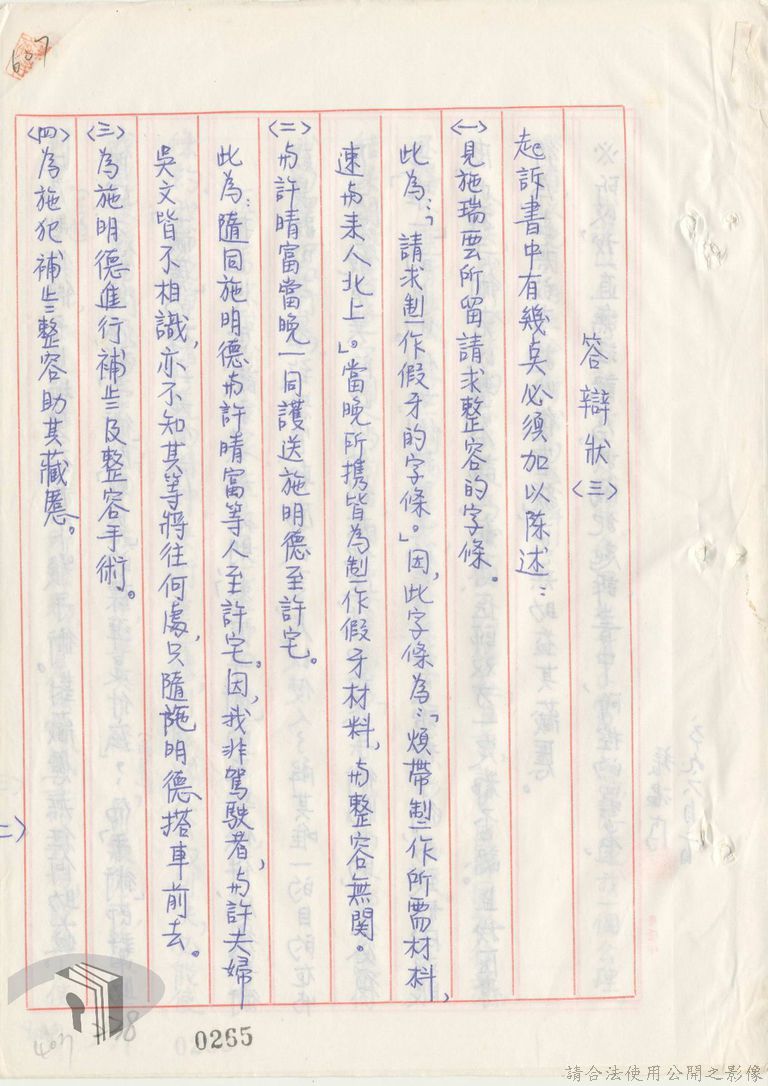 607
答辯狀(三)
起訴書中有幾点必須加以陈述：
(一)見施瑞雲所留請求整容的字條。
此為：「請求制作假牙的字條。」因，此字條為：「煩帶制作所需材料，
速与来人北上」。當晚所携皆為制作假牙材料，与整容無関。
(二)与許晴富當晚一同護送施明德至許宅。
此為：隨同施明德与許晴富等人至許宅。因，我非駕駛者，与許夫婦
吳文皆不相識，亦不知其等將往何處，只隨施明德搭車前去。
(三)為施明德進行補齿及整容手術。
(四)為施犯補齿整容助其藏匿。
0265
407
請合法使用公開之影像